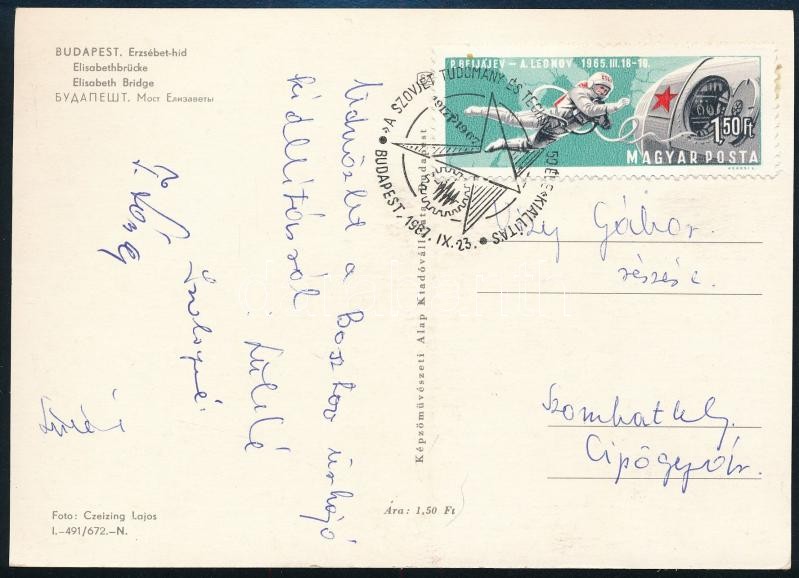 BUDAPEST. Erzsébet-híd
Elisabethbrücke
Elisabeth Bridge
БУДАПЕШТ. Мост Елизаветы
P. BELJAJEV – A. LEONOV 1965. III. 18–19.
1.50 Ft
MAGYAR POSTA
„A SZOVJET TUDOMÁNY ÉS TECHNIKA 50 ÉVE” KIÁLLÍTÁS
1917–1967
BUDAPEST, 1967. IX. 23.
Üdvözlet a Vosztok űrhajó
kiállításról
Gábor
részére
Szombathely
Cipőgyár.
Képzőművészeti Alap Kiadóvállalata, Budapest
Foto: Czeizing Lajos
I.–491/672.–N.
Ára: 1,50 Ft